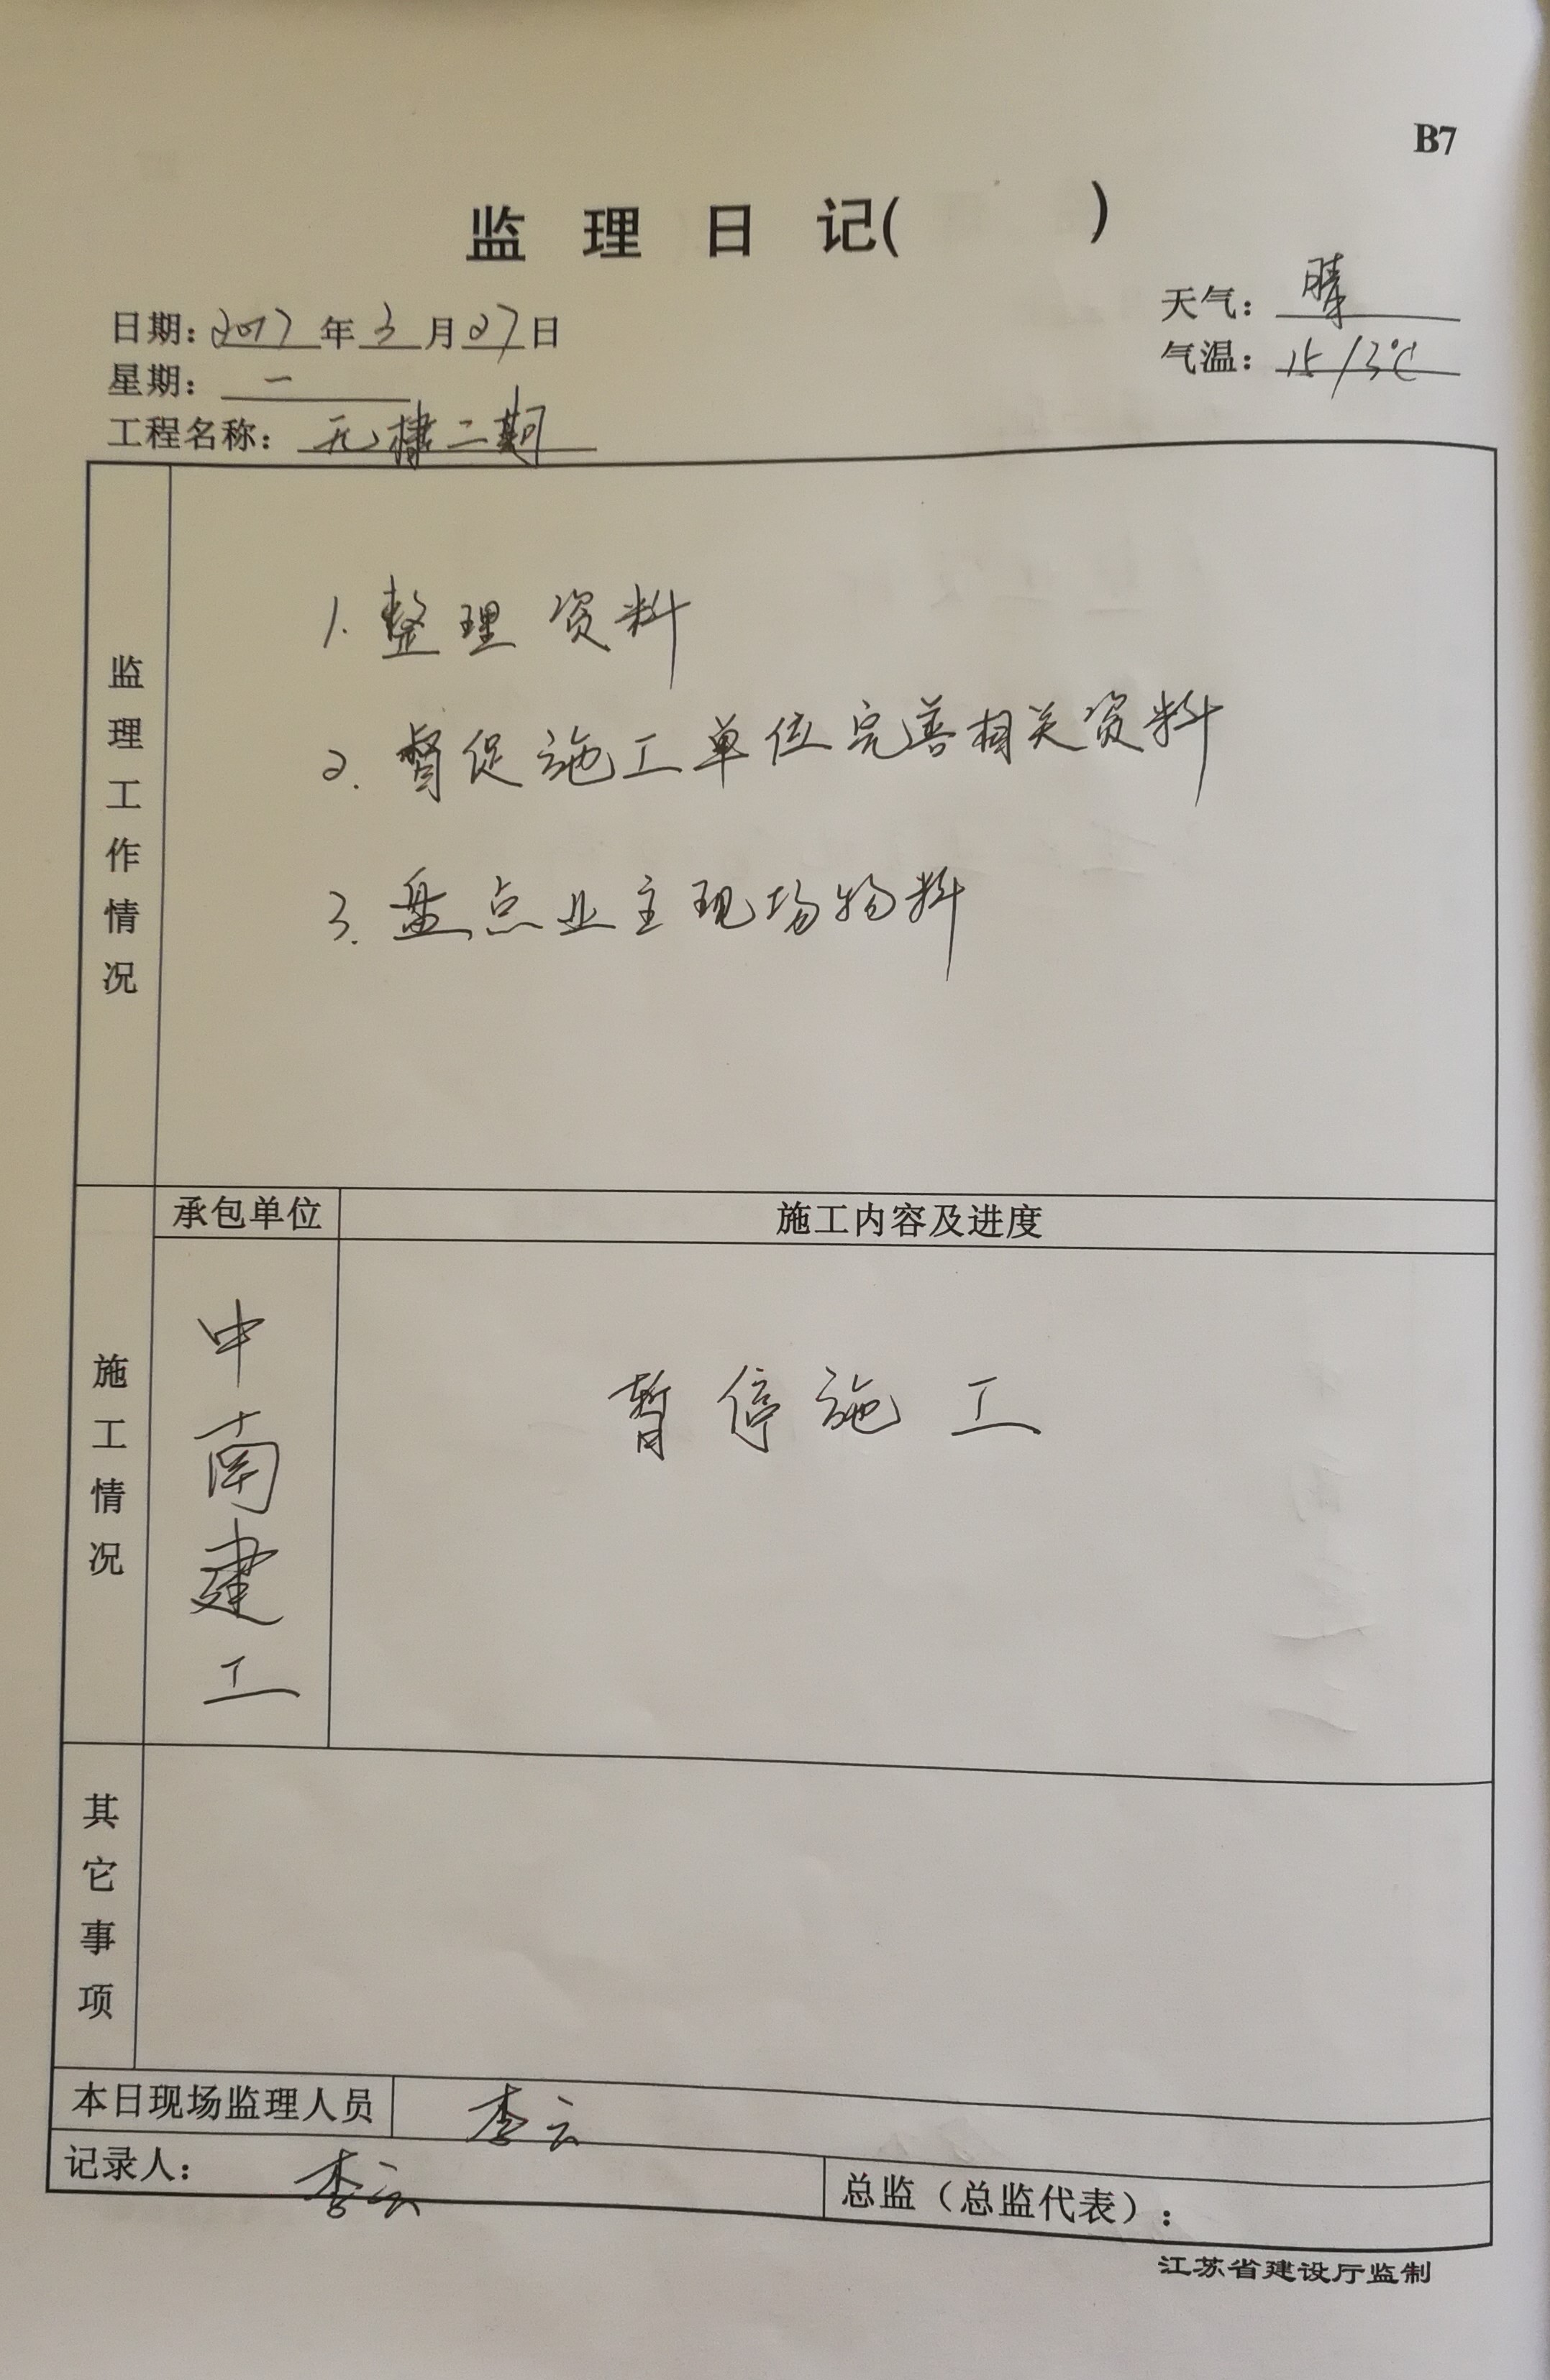 B7
监理日记(　　)
日期：2017年3月27日
天气：晴
星期：一
气温：15/3℃
工程名称：无棣二期
监理工作情况
1. 整理资料
2. 督促施工单位完善相关资料
3. 盘点业主现场物料
施工情况
承包单位
施工内容及进度
中南建工
暂停施工
其它事项
本日现场监理人员
李云
记录人：李云
总监（总监代表）：
江苏省建设厅监制